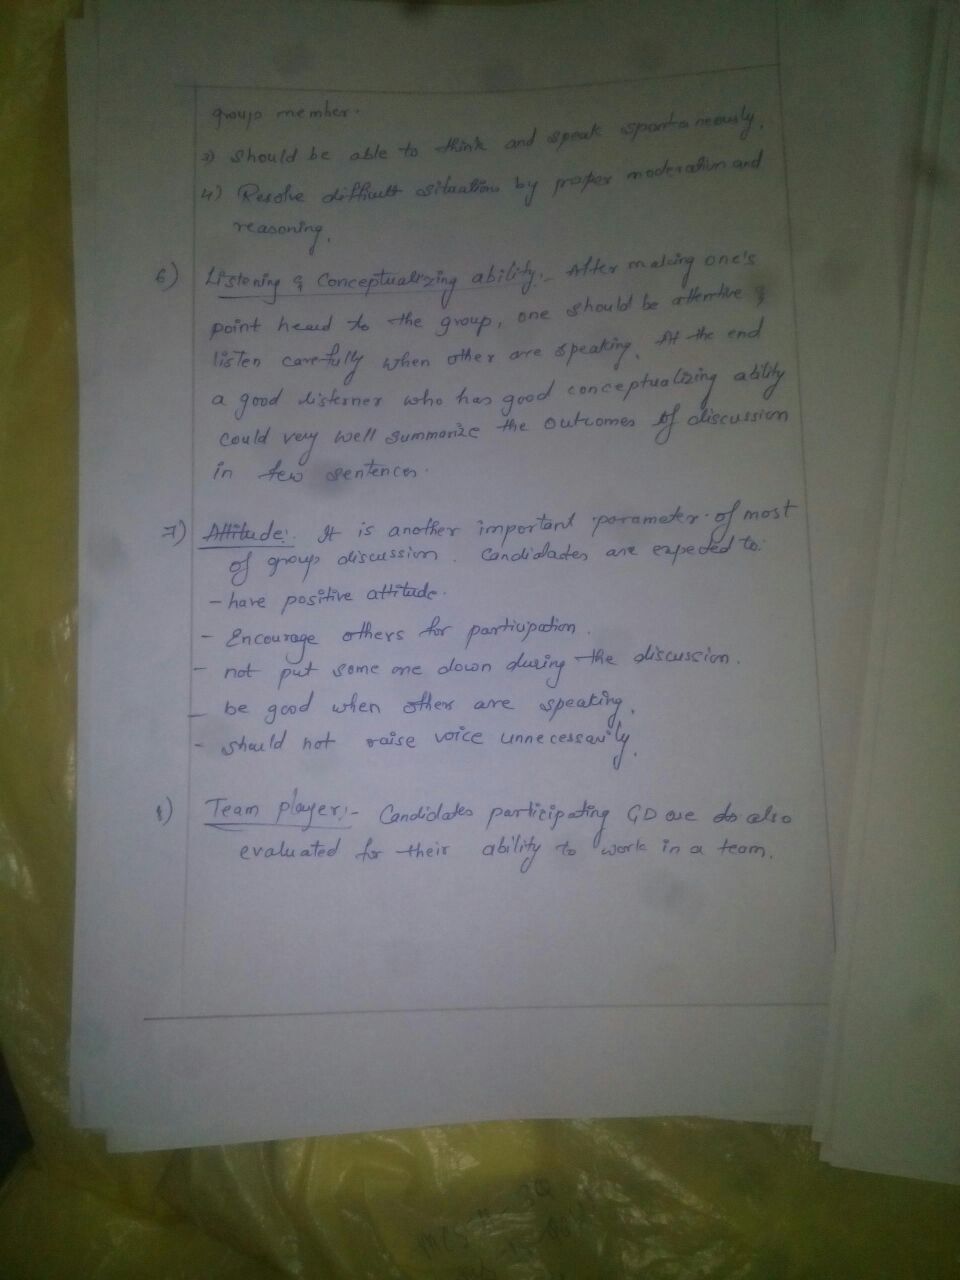 group member.
3) should be able to think and speak spontaneously.
4) Resolve difficult situations by proper moderation and
reasoning.
6) Listening & Conceptualizing ability:- After making one's
point heard to the group, one should be attentive &
listen carefully when other are speaking. At the end
a good listerner who has good conceptualizing ability
could very well summarize the outcomes of discussion
in few sentences.
7) Attitude:. It is another important parameter of most
of group discussion. Candidates are expected to:
- have positive attitude.
- Encourage others for participation.
- not put some one down during the discussion.
- be good when other are speaking.
- should not raise voice unnecessarily.
8) Team player:- Candidates participating GD are also
evaluated for their ability to work in a team.